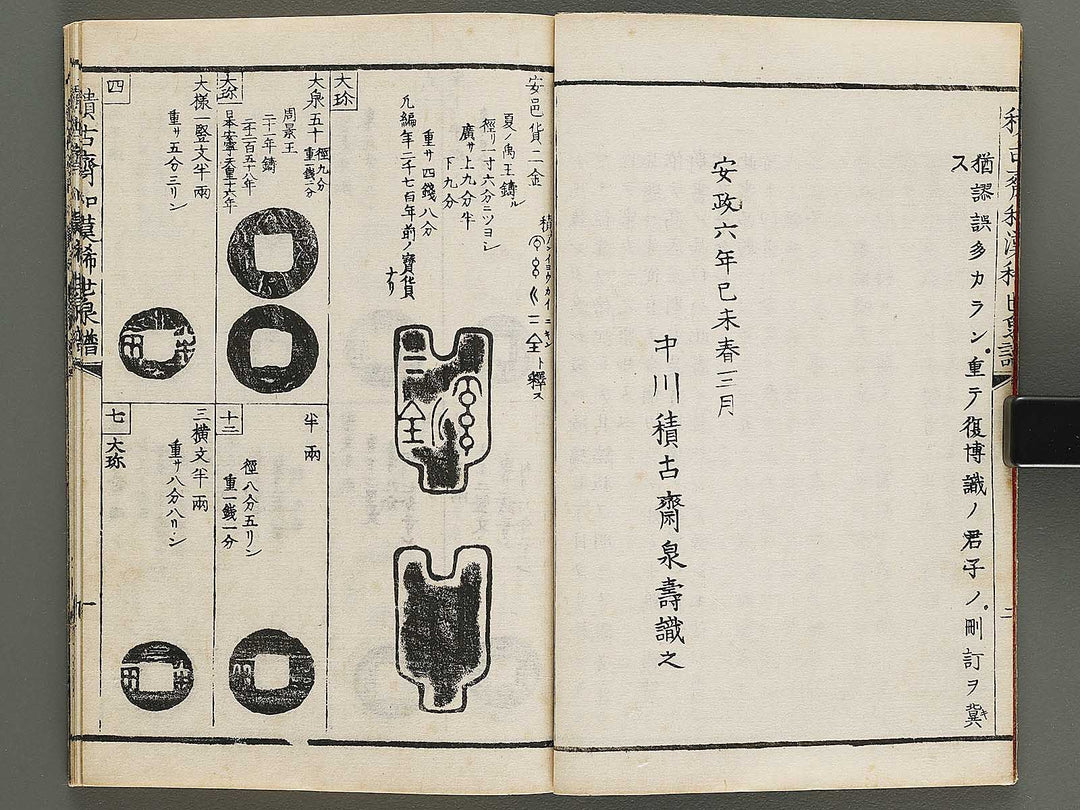 猶謬誤多カラン重テ復博識ノ君子ノ刪訂ヲ冀
ス
安政六年己未春三月
中川積古齋泉壽識之
二
安邑貨二金
夏ノ禹王鋳ル
徑リ一寸六分ニツヨシ
廣サ上九分半
下九分
重サ四錢八分
凡編年二千七百年前ノ寳貨
ナリ
二全ト釋ス
大珎
大泉五十
徑九分
重一錢一分
周景王
二十一年鑄
大珎
大様一竪文半兩
重サ五分三リン
四
半兩
徑八分五リン
重一錢一分
十二
三横文半兩
重サ八分八リン
七
大珎
積古齋和漢稀世泉譜
一